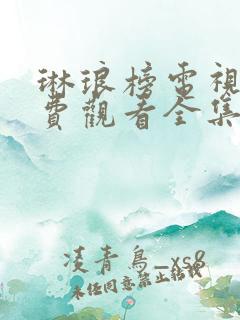 琳琅榜電視
費觀看全集
凌青鳥_xs8
未任同意禁止轉載